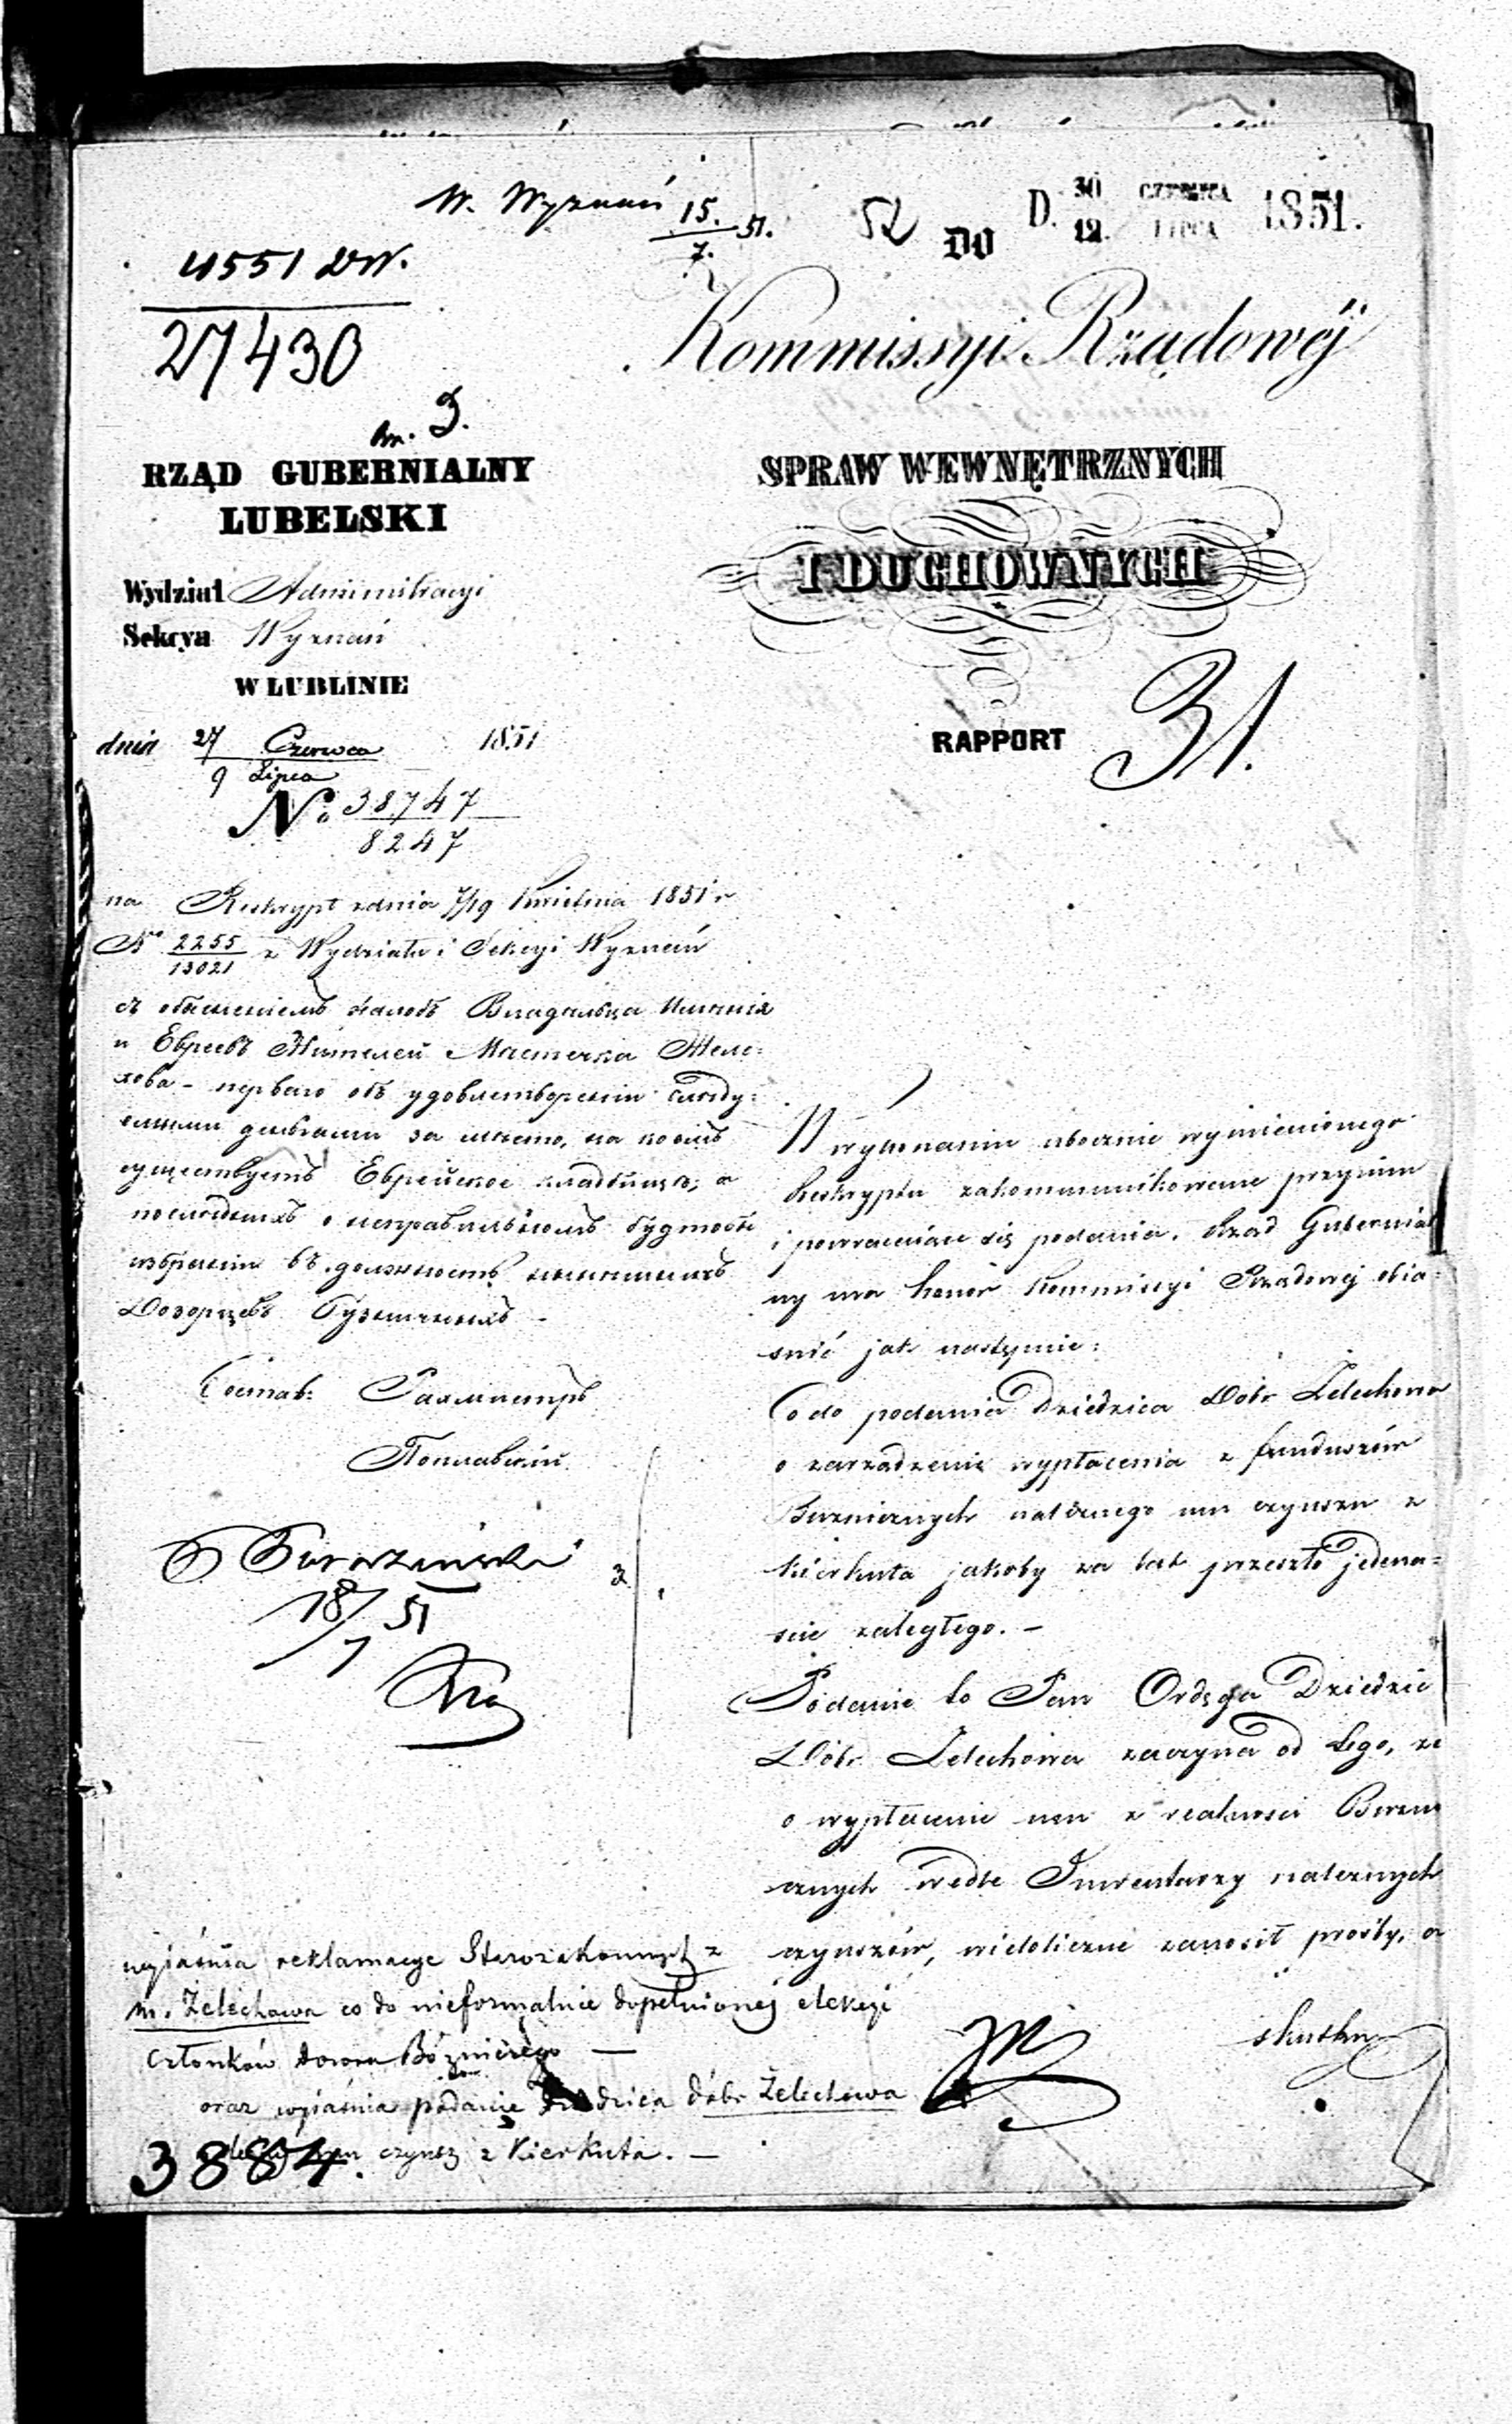 W. Wyznań 15./7. 51.
52
DO
D. 30 CZERWCA / 12. LIPCA 1851.
4551 DW.
27430
Kommissyi Rządowéj
RZĄD GUBERNIALNY
LUBELSKI
SPRAW WEWNĘTRZNYCH
I DUCHOWNYCH
Wydział Administracyi
Sekcya Wyznań
W LUBLINIE
RAPPORT
31.
dnia 27 Czerwca / 9 Lipca 1851
No. 38747
8247
na Reskrypt z dnia 7/19 Kwietnia 1851 r
No 2255/13021 z Wydziału i Sekcyi Wyznań
съ объясненіемъ жалобъ Владѣльца имѣнія
и Евреевъ Жителей Мѣстечка Желе-
хова - перваго объ удовлетвореніи слѣду-
емыми деньгами за мѣсто, на коемъ
существуетъ Еврейское кладбище, а
послѣднихъ о неправильномъ будтобы
избраніи въ должность
Дозорцевъ Бузничныхъ -
Состав:
W wykonaniu ubocznie wymienionego
Reskryptu zakommunikowane przy nim
i powracające się podania. Rząd Gubernial
ny ma honor Kommissyi Rządowéj obja-
śnić jak następuie:
Co do podania Dziedzica Dóbr Żelechowa
o zarządzenie wypłacenia z funduszów
Bużniczych należnego mu czynszu z
kierkuta jakoby za lat przeszło jedena-
ście zaległego. -
Podanie to Pan Ordęga Dziedzic
Dóbr Żelechowa zaczyna od tego, że
o wypłacenie mu z realności Bużni
cznych wedle Inwentarzy należnych
czynszów, widoliczne zanosił prośby, a
skutku
18/7 51
wyjaśnia reklamacye Starozakonnych z
m. Żelechowa co do nieformalnie dopełnionéj elekcyi
Członków Dozoru Bóżniczego —
oraz wyjaśnia podanie Dziedzica dóbr Żelechowa
czynsz z Kierkuta. —
3884.